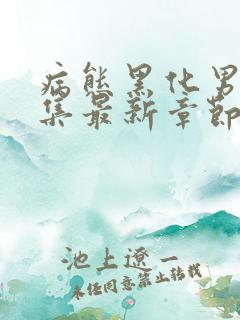 病態黑化男
集最新章節
池上遼一
未經同意禁止轉載